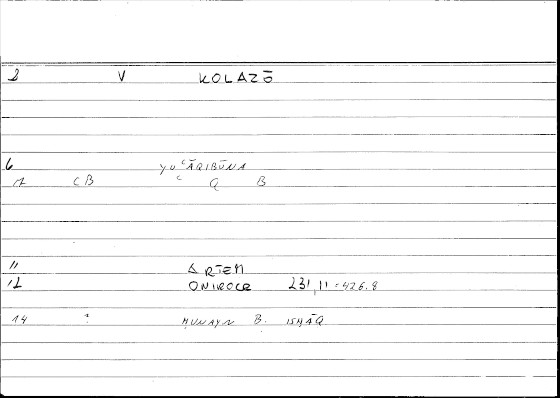 2 V KOLAZŌ
6 YUʿĀQIBŪNA
CB ʿ Q B
11 ARTEM
12 ONIROCR 231,11=426.8
14 ḤUNAYN B. ISḤĀQ